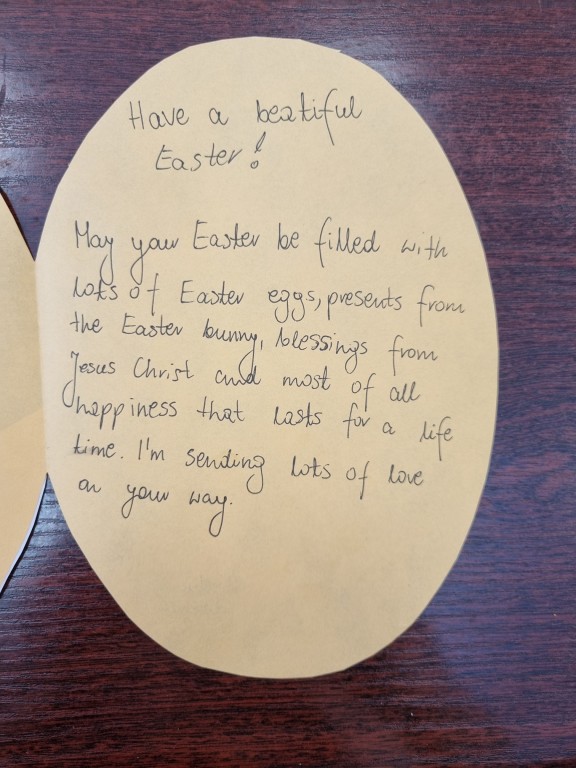 Have a beatiful
Easter!
May your Easter be filled with
lots of Easter eggs, presents from
the Easter bunny, blessings from
Jesus Christ and most of all
happiness that lasts for a life
time. I'm sending lots of love
on your way.